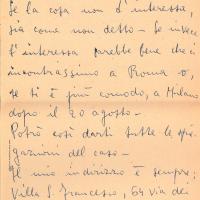 Se la cosa non t'interessa,
sia come non detto - Se invece
t'interessa sarebbe bene che ci
incontrassimo a Roma o,
se ti è più comodo, a Milano
dopo il 20 agosto -
Potrò così darti tutte le spie-
gazioni del caso -
Il mio indirizzo è sempre:
Villa S. Francesco, 64 via dei